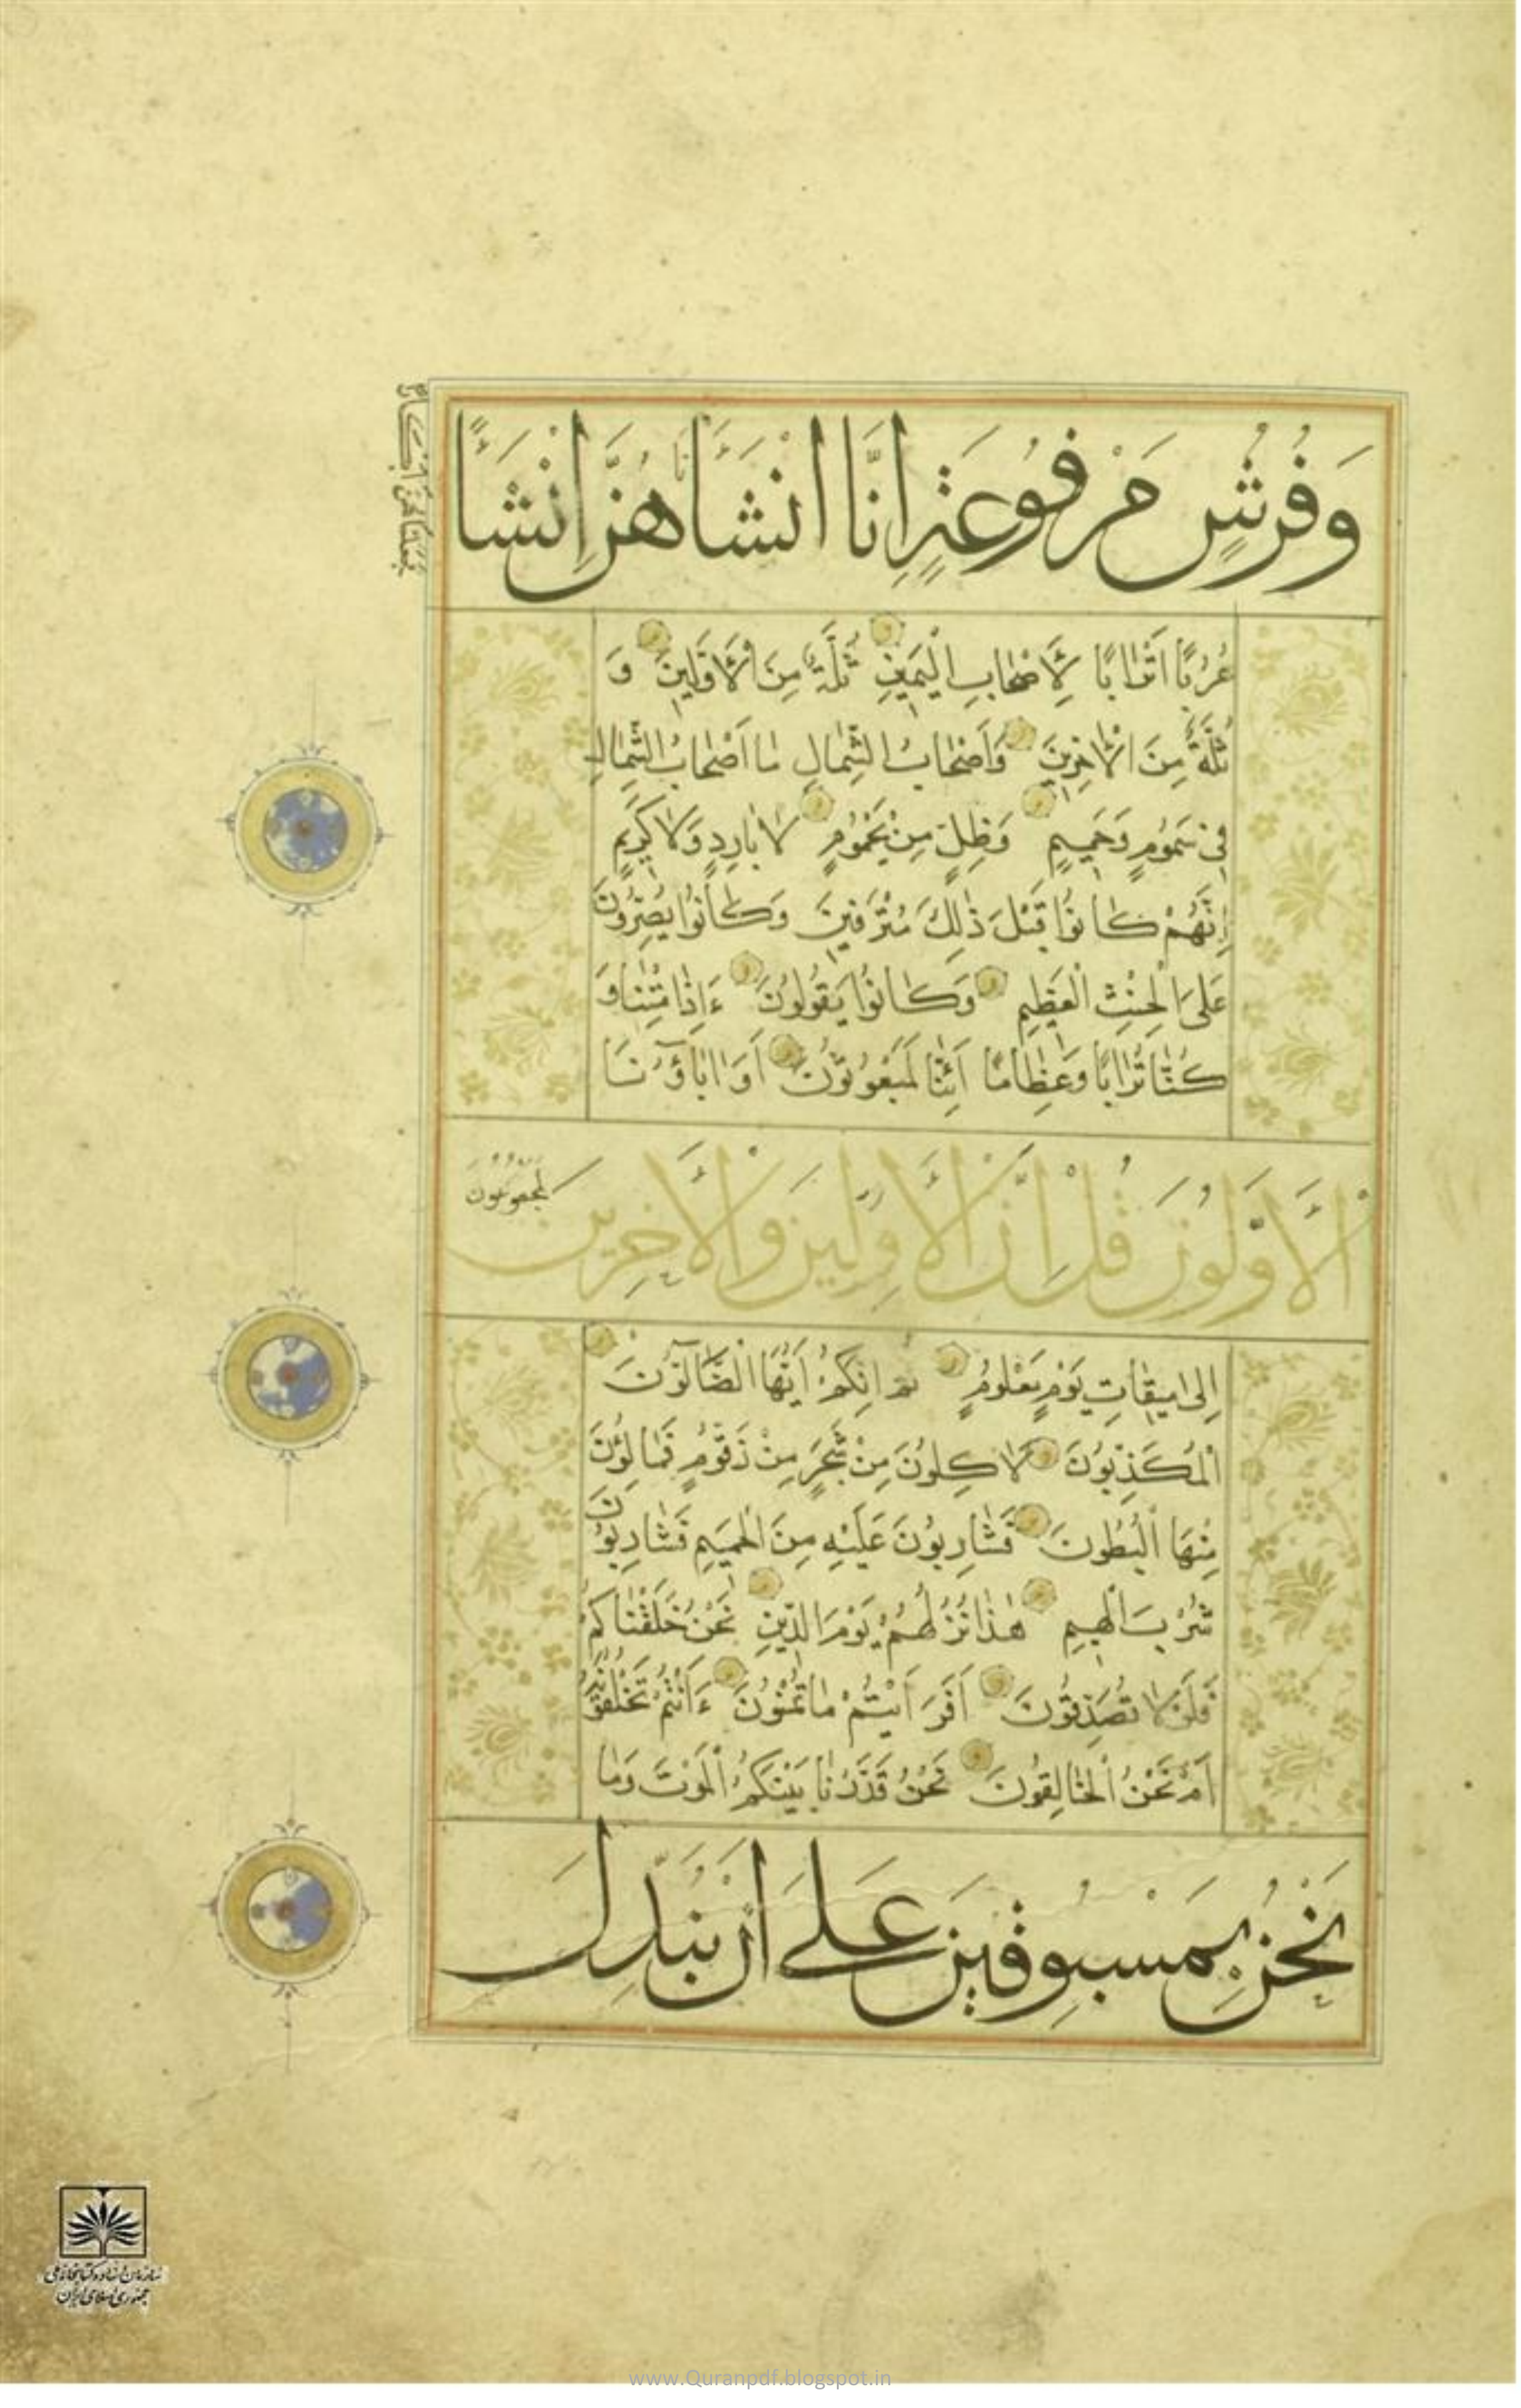 وَفُرُشٍ مَرْفُوعَةٍ اِنَّا اَنْشَأْنَاهُنَّ اِنْشَاءً
فَجَعَلْنَاهُنَّ اَبْكَارًا
عُرُبًا اَتْرَابًا لِأَصْحَابِ الْيَمِينِ ثُلَّةٌ مِنَ الْأَوَّلِينَ وَ
ثُلَّةٌ مِنَ الْآخِرِينَ وَأَصْحَابُ الشِّمَالِ مَا أَصْحَابُ الشِّمَالِ
فِي سَمُومٍ وَحَمِيمٍ وَظِلٍّ مِنْ يَحْمُومٍ لَا بَارِدٍ وَلَا كَرِيمٍ
إِنَّهُمْ كَانُوا قَبْلَ ذَلِكَ مُتْرَفِينَ وَكَانُوا يُصِرُّونَ
عَلَى الْحِنْثِ الْعَظِيمِ وَكَانُوا يَقُولُونَ ءَاِذَا مِتْنَا وَ
كُنَّا تُرَابًا وَعِظَامًا أَئِنَّا لَمَبْعُوثُونَ أَوَ اٰبَاؤُنَا
الْأَوَّلُونَ قُلْ إِنَّ الْأَوَّلِينَ وَالْآخِرِينَ لَمَجْمُوعُونَ
إِلَى مِيقَاتِ يَوْمٍ مَعْلُومٍ ثُمَّ إِنَّكُمْ أَيُّهَا الضَّالُّونَ
الْمُكَذِّبُونَ لَآكِلُونَ مِنْ شَجَرٍ مِنْ زَقُّومٍ فَمَالِؤُنَ
مِنْهَا الْبُطُونَ فَشَارِبُونَ عَلَيْهِ مِنَ الْحَمِيمِ فَشَارِبُونَ
شُرْبَ الْهِيمِ هٰذَا نُزُلُهُمْ يَوْمَ الدِّينِ نَحْنُ خَلَقْنَاكُمْ
فَلَوْلَا تُصَدِّقُونَ أَفَرَأَيْتُمْ مَا تُمْنُونَ ءَأَنْتُمْ تَخْلُقُونَهُ
أَمْ نَحْنُ الْخَالِقُونَ نَحْنُ قَدَّرْنَا بَيْنَكُمُ الْمَوْتَ وَمَا
نَحْنُ بِمَسْبُوقِينَ عَلَى أَنْ نُبَدِّلَ
سازمان اسناد و کتابخانه ملی
جمهوری اسلامی ایران
www.Quranpdf.blogspot.in